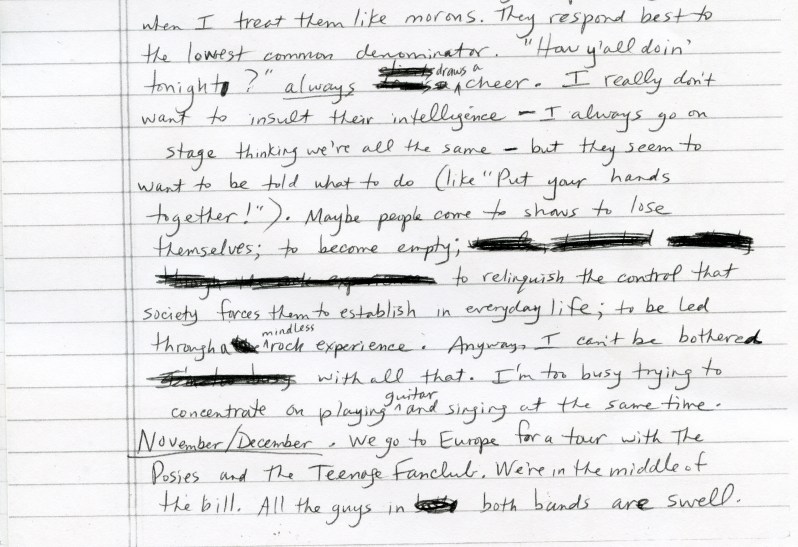 when I treat them like morons. They respond best to
the lowest common denominator. "How y'all doin'
tonight?" always draws a cheer. I really don't
want to insult their intelligence – I always go on
stage thinking we're all the same – but they seem to
want to be told what to do (like "Put your hands
together!"). Maybe people come to shows to lose
themselves; to become empty;
to relinquish the control that
society forces them to establish in everyday life; to be led
through a mindless rock experience. Anyway, I can't be bothered
with all that. I'm too busy trying to
concentrate on playing guitar and singing at the same time.
November/December. We go to Europe for a tour with The
Posies and the Teenage Fanclub. We're in the middle of
the bill. All the guys in both bands are swell.